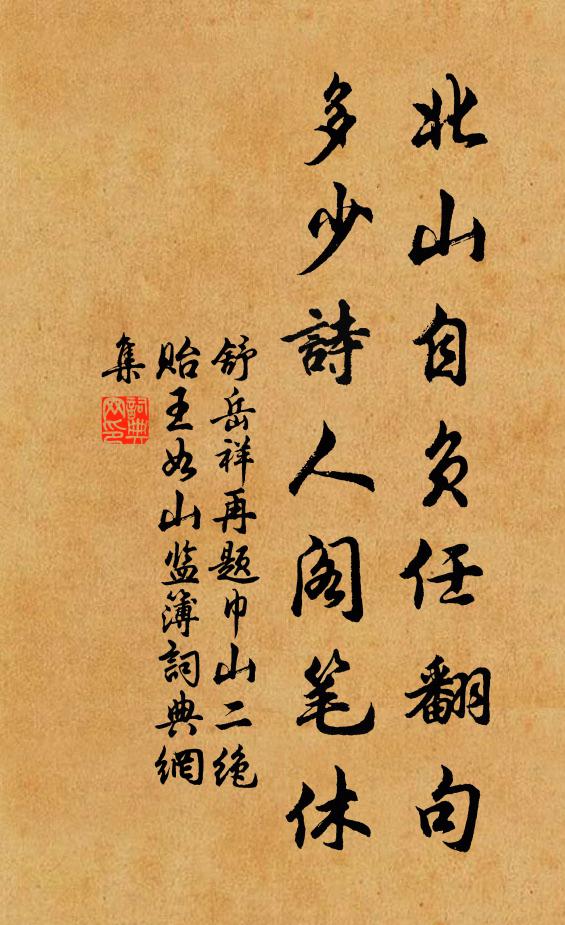 北山自负任翻句
多少詩人阁笔休
舒岳祥再题巾山二绝
贻王如山监簿詞典網
集
詞典
网印